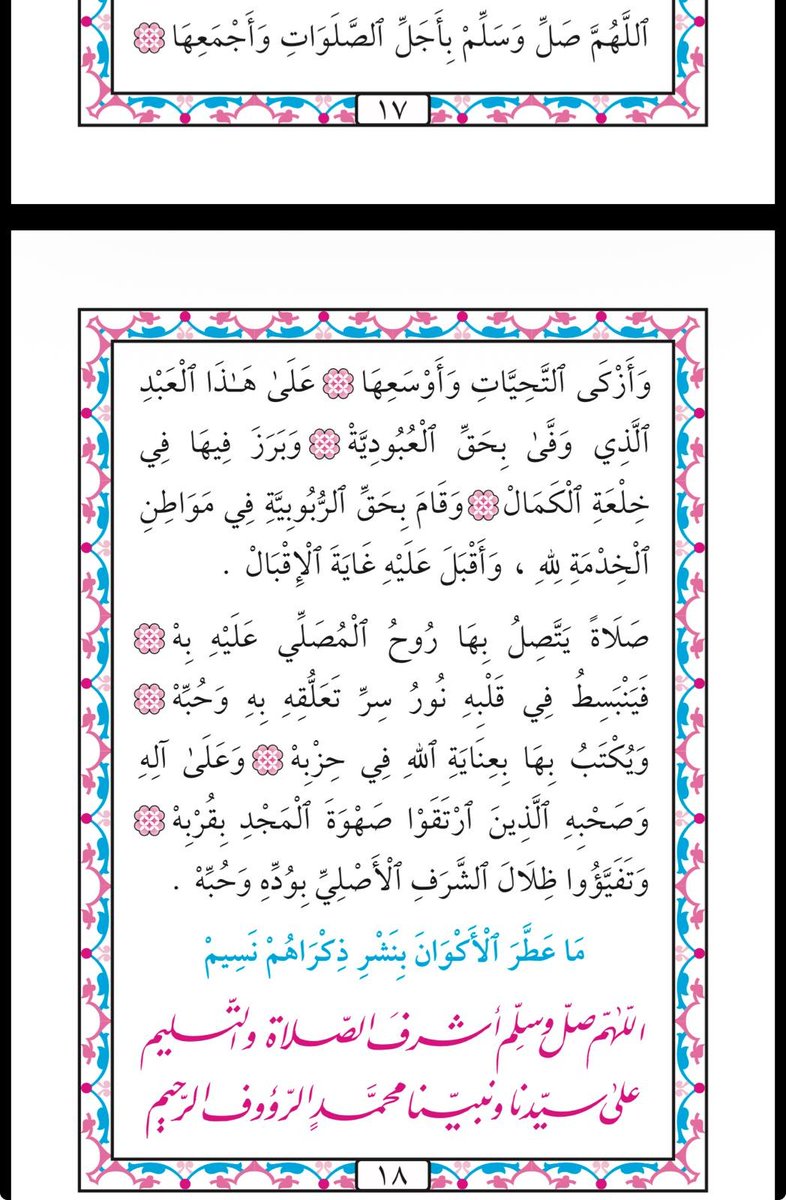 ٱللَّهُمَّ صَلِّ وَسَلِّمْ بِأَجَلِّ ٱلصَّلَوَاتِ وَأَجْمَعِهَا
١٧
وَأَزْكَى ٱلتَّحِيَّاتِ وَأَوْسَعِهَا عَلَىٰ هَـٰذَا ٱلْعَبْدِ
ٱلَّذِي وَفَّىٰ بِحَقِّ ٱلْعُبُودِيَّةْ وَبَرَزَ فِيهَا فِي
خِلْعَةِ ٱلْكَمَالْ وَقَامَ بِحَقِّ ٱلرُّبُوبِيَّةِ فِي مَوَاطِنِ
ٱلْخِدْمَةِ لِلهِ ، وَأَقْبَلَ عَلَيْهِ غَايَةَ ٱلْإِقْبَالْ .
صَلَاةً يَتَّصِلُ بِهَا رُوحُ ٱلْمُصَلِّي عَلَيْهِ بِهْ
فَيَنْبَسِطُ فِي قَلْبِهِ نُورُ سِرِّ تَعَلُّقِهِ بِهِ وَحُبِّهْ
وَيُكْتَبُ بِهَا بِعِنَايَةِ ٱللهِ فِي حِزْبِهْ وَعَلَىٰ آلِهِ
وَصَحْبِهِ ٱلَّذِينَ ٱرْتَقَوْا صَهْوَةَ ٱلْمَجْدِ بِقُرْبِهْ
وَتَفَيَّؤُوا ظِلَالَ ٱلشَّرَفِ ٱلْأَصْلِيِّ بِوُدِّهِ وَحُبِّهْ .
مَا عَطَّرَ ٱلْأَكْوَانَ بِنَشْرِ ذِكْرَاهُمْ نَسِيمْ
اللّٰهمّ صلّ وسلّم أشرفَ الصّلاة والتّسليم
علىٰ سيّدنا ونبيّنا محمَّدٍ الرّؤوف الرّحيم
١٨